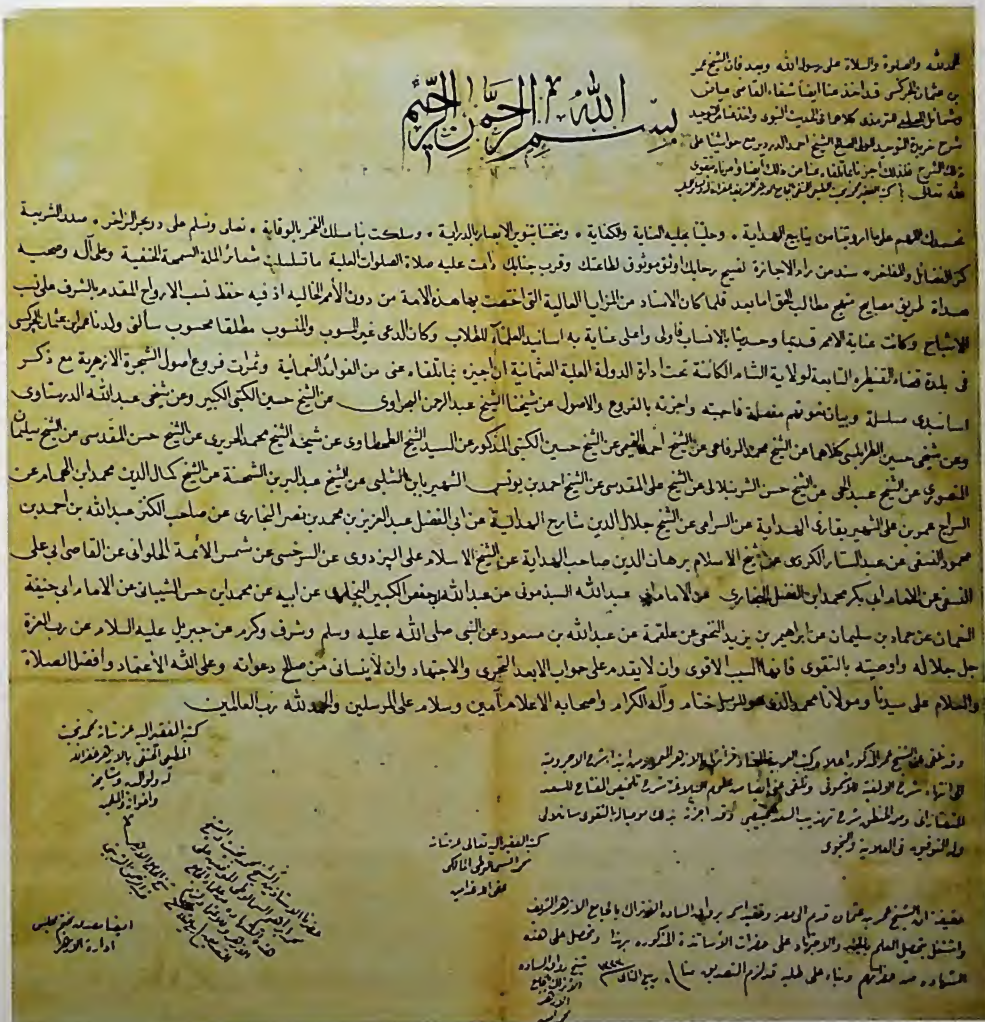 الحمد لله والصلوة والسلاة على رسول الله وبعد فان الشيخ عمر
بن عثمان الجركسى قد اخذ عنا ايضاً شفاء القاضى عياض
وشمائل الترمذى كلاهما فى الحديث النبوى واخذ عنا التوحيد
شرح خريدة التوحيد الشيخ احمد الدردير مع حواشيها على
ذلك الشرح فلذلك اجزناه بما تلقاه عنا من ذلك ايضاً واوصيناه بتقوى
الله تعالى
بسم الله الرحمن الرحيم
نحمدك اللهم على ما ارويتنا من ينابيع الهداية . وحليتنا بحلية العناية والكفاية . ومنحتنا بتنوير الابصار بالدراية . وسلكت بنا مسلك النهر بالوقاية . نصلى ونسلم على در وبحر الزاخر . صدر الشريعة
كنز الفضائل والمفاخر . سند من رام الاجازة لفسيح رحابك اوثق موثوق لطاعتك وقرب جنابك دامت عليه صلاة الصلوات العلية ما تسلسلت شعائر الملة السمحة الحنفية وعلى آله وصحبه
هداة طريق مصابيح منهج مطالب الحق اما بعد فلما كان الاسناد من المزايا العالية التى اختصت بها هذه الامة من دون الأمم الخاليه اذ فيه حفظ نسب الارواح المقدم بالشرف على نسب
الاشباح وكانت عناية الامم قديما وحديثا بالانساب فاولى واعلى عناية به اسانيد العلماء للطلاب وكان الدعى غير المنسوب والمنسوب مطلقا محسوب سألنى ولدنا عمر بن عثمان الجركسى
فى بلدة قضاء القنيطره التابعة لولاية الشام الكائنة تحت دارة الدولة العلية العثمانية ان اجيزه بما تلقاه عنى من الفوائد النعمانية وثمرات فروع اصول الشجرة الازهرية مع ذكر
اسانيدى مسلسلة وبيان نعوتهم مفصلة فاجبته واجزته بالفروع والاصول عن شيخنا الشيخ عبد الرحمن البحراوى عن الشيخ حسين الكتبى الكبير وعن شيخى عبد الله الدرستاوى
وعن شيخى حسين الطرابلسى كلاهما عن الشيخ محمد الرفاعى عن الشيخ احمد التميمى عن الشيخ حسين الكتبى المذكور عن السيد الشيخ الطحطاوى عن شيخه الشيخ محمد الحريرى عن الشيخ حسن المقدسى عن الشيخ سليمان
المنصورى عن الشيخ عبد الحى عن الشيخ حسن الشرنبلالى عن الشيخ على المقدسى عن الشيخ احمد بن يونس الشهير بابن الشلبى عن الشيخ عبد البر بن الشحنة عن الشيخ كمال الدين محمد ابن الهمام عن
السراج عمر بن على الشهير بقارى الهداية عن السرامى عن الشيخ جلال الدين شارح الهداية عن ابى الفضل عبد العزيز بن محمد بن نصر البخارى عن صاحب الكنز عبد الله بن احمد بن
محمود النسفى عن عبد الستار الكردى عن شيخ الاسلام برهان الدين صاحب الهداية عن الشيخ الاسلام على البزدوى عن السرخسى عن شمس الأئمة الحلوانى عن القاضى ابى على
النسفى عن الامام ابى بكر محمد ابن الفضل البخارى عن الامام ابى عبد الله السبذمونى عن عبد الله ابى حفص الكبير البخارى عن ابيه عن محمد ابن حسن الشيبانى عن الامام ابى حنيفة
النعمان عن حماد بن سليمان عن ابراهيم بن يزيد النخعى عن علقمة عن عبد الله بن مسعود عن النبى صلى الله عليه وسلم وشرف وكرم عن جبريل عليه السلام عن رب العزة
جل جلاله واوصيته بالتقوى فانها السبب الاقوى وان لا يقدم على جواب الا بعد التحرى والاجتهاد وان لا ينسانى من صالح دعواته وعلى الله الاعتماد وأفضل الصلاة
والسلام على سيدنا ومولانا محمد الذى هو للرسل ختام وآله الكرام واصحابه الاعلام آمين وسلام على المرسلين والحمد لله رب العالمين
كتبه الفقير اليه عز شأنه محمد بخيت
المطيعى الحنفى بالازهر غفر الله
له ولوالديه ومشايخه
واخوانه والمسلمين
وقد تلقى عنى الشيخ عمر المذكور اعلاه وكتب العربية المعتاد قرأتها بالازهر المعمور من ابتداء شرح الاجرومية
الى انتهاء شرح الالفية للاشمونى وتلقى عنى ايضا من علوم البلاغة شرح تلخيص المفتاح للسعد
التفتازانى ومن المنطق شرح تهذيب السعد للخبيصى وقد اجزته بذلك موصيا له بالتقوى سائلا لى
وله التوفيق فى العلانية والنجوى
كتبه الفقير اليه تعالى عز شأنه
محمد السمالوطى المالكى
عفى الله عنه
حقيقة ان الشيخ عمر بن عثمان قدم الى مصر وتقيد اسمه برواق الساده الاتراك بالجامع الازهر الشريف
واشتغل بتحصيل العلم بالجد والاجتهاد على حضرات الأساتذة المذكوره بهذا وتحصل على هذه
الشهاده من حضراتهم وبناء على طلبه قد لزم التصديق منا ربيع الثانى ١٣٢٣
شيخ رواق الساده
الاتراك بالجامع
الازهر
ادارة الازهر